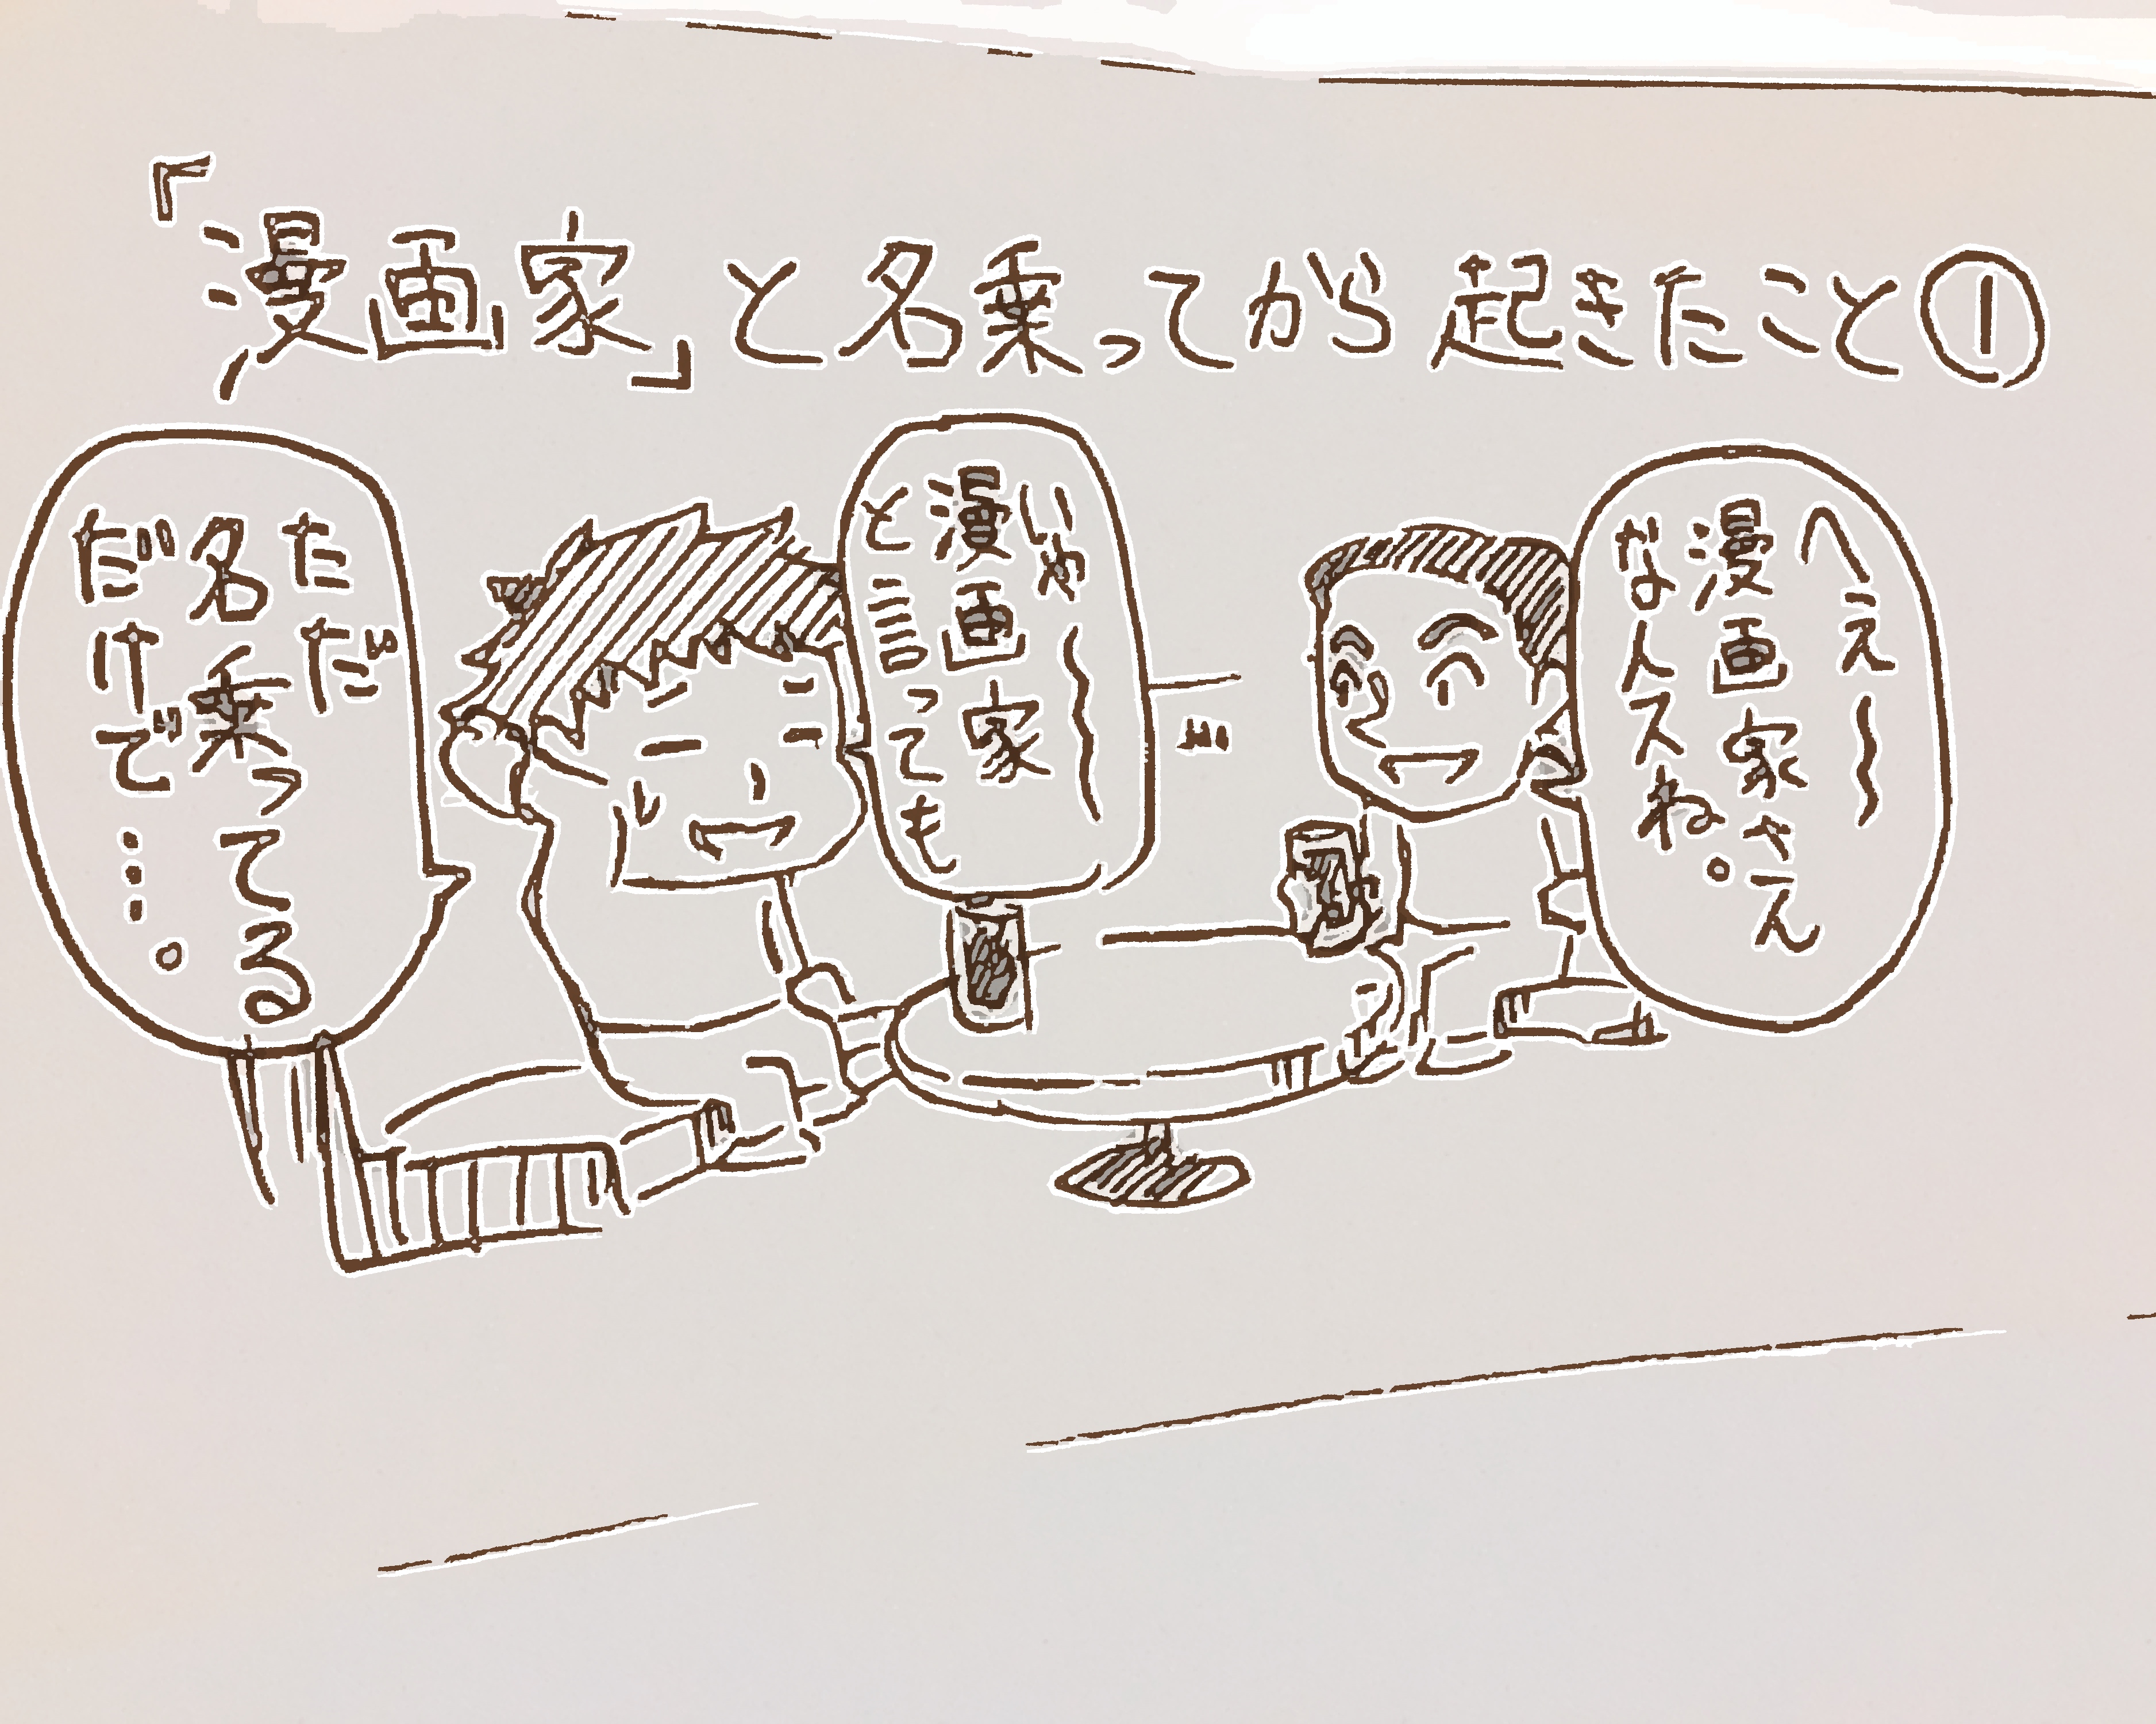 「漫画家」と名乗ってから起きたこと①
へえ〜
漫画家さん
なんスね。
いや〜
漫画家
と言っても
ただ
名乗ってる
だけで……。